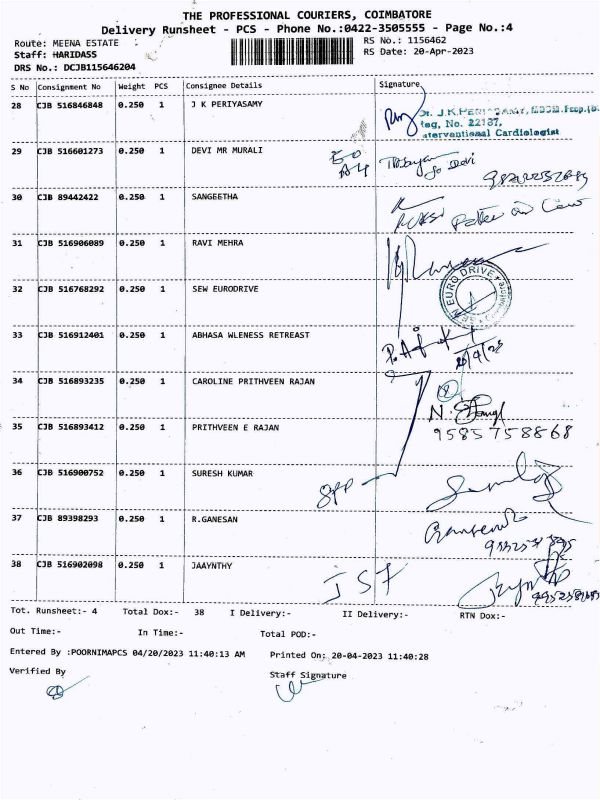 THE PROFESSIONAL COURIERS, COIMBATORE
Delivery Runsheet - PCS - Phone No.:0422-3505555 - Page No.:4
Route: MEENA ESTATE RS No.: 1156462
Staff: HARIDASS RS Date: 20-Apr-2023
DRS No.: DCJB115646204
S No Consignment No Weight PCS Consignee Details Signature
28 CJB 516846848 0.250 1 J K PERIYASAMY
Dr. J.K.PERIYASAMY,
Reg, No. 22187,
Interventional Cardiologist
29 CJB 516601273 0.250 1 DEVI MR MURALI
30 CJB 89442422 0.250 1 SANGEETHA
31 CJB 516906089 0.250 1 RAVI MEHRA
32 CJB 516768292 0.250 1 SEW EURODRIVE
EURO DRIVE
33 CJB 516912401 0.250 1 ABHASA WLENESS RETREAST
34 CJB 516893235 0.250 1 CAROLINE PRITHVEEN RAJAN
35 CJB 516893412 0.250 1 PRITHVEEN E RAJAN
9585758868
36 CJB 516900752 0.250 1 SURESH KUMAR
37 CJB 89398293 0.250 1 R.GANESAN
38 CJB 516902098 0.250 1 JAAYNTHY
Tot. Runsheet:- 4 Total Dox:- 38 I Delivery:- II Delivery:- RTN Dox:-
Out Time:- In Time:- Total POD:-
Entered By :POORNIMAPCS 04/20/2023 11:40:13 AM Printed On: 20-04-2023 11:40:28
Verified By Staff Signature